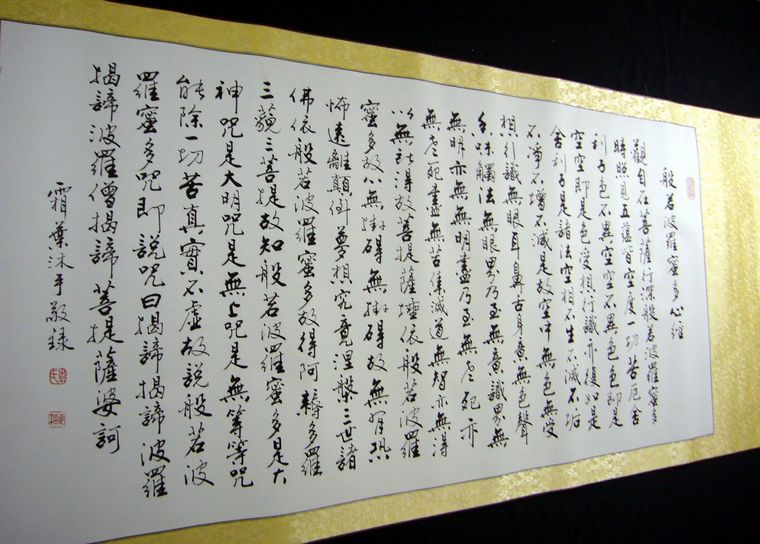 般若波羅蜜多心經
觀自在菩薩行深般若波羅蜜多
時照見五蘊皆空度一切苦厄舍
利子色不異空空不異色色即是
空空即是色受想行識亦復如是
舍利子是諸法空相不生不滅不垢
不淨不增不減是故空中無色無受
想行識無眼耳鼻舌身意無色聲
香味觸法無眼界乃至無意識界無
無明亦無無明盡乃至無老死亦
無老死盡無苦集滅道無智亦無得
以無所得故菩提薩埵依般若波羅
蜜多故心無掛碍無掛碍故無有恐
怖遠離顛倒夢想究竟涅槃三世諸
佛依般若波羅蜜多故得阿耨多羅
三藐三菩提故知般若波羅蜜多是大
神咒是大明咒是無上咒是無等等咒
能除一切苦真實不虛故說般若波
羅蜜多咒即說咒曰揭諦揭諦波羅
揭諦波羅僧揭諦菩提薩婆訶
霜葉沐手敬錄